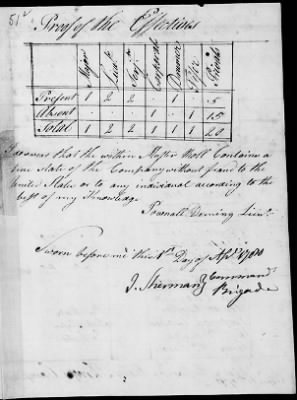 Proof of the Effectives
Major Lieuts Serjts Corporals Drummers Fifer Privates
Present 1 2 2 5
Absent 1 1 15
Total 1 2 2 1 1 20
I swear that the within Muster Roll Contains a
true State of the Company without fraud to the
United States or to any individual according to the
best of my Knowledge
Pownall Deming Lieut.
Sworn before me this Day of Apl. 1780
J. Sherman Command
Brigade